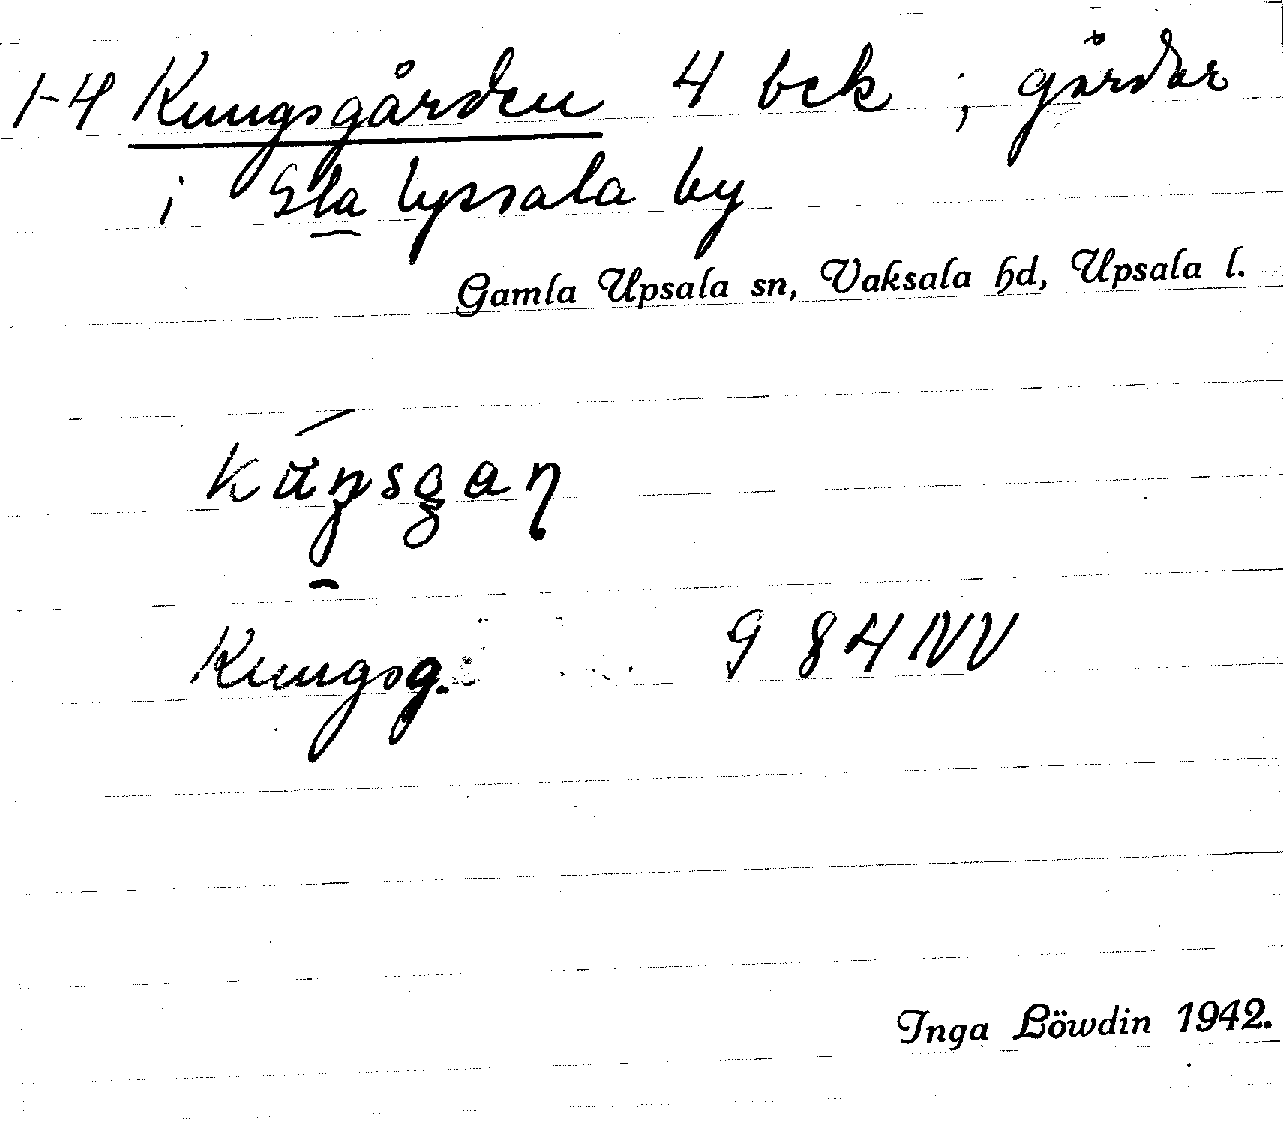 1-4 Kungsgården 4 bek ; gårdar
i Gla Upsala by
Gamla Upsala sn, Vaksala hd, Upsala l.
Kungsg. 9 84 NV
Inga Löwdin 1942.